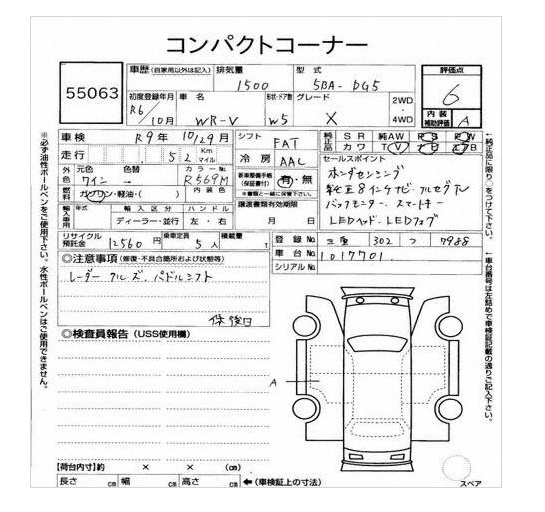 コンパクトコーナー
55063
車歴 (自家用以外は記入) 排気量 1500 型式 5BA-DG5
評価点 6
初度登録年月 R6/10月 車名 WR-V 形状・ドア数 W5 グレード X 2WD・4WD
内装補助評価 A
車検 R9年10/29月 シフト FAT
純正品 SR 純AW PS PW カワ TV ナビ エアB
走行 52 Km マイル 冷房 AAL
セールスポイント
ホンダセンシング
純正8インチナビ アルセグTV
バックモニター、スマートキー
LEDヘッド・LEDフォグ
外色 元色 ワイン 色替 カラーNo. R569M 内装色
新車整備手帳(保証書付) 有・無
燃料 ガソリン・軽油・( )
輸入車用 年式 輸入区分 ハンドル
ディーラー・並行 左・右
譲渡書類有効期限 月 日
リサイクル預託金 12560円 乗車定員 5人 積載量 t
登録No. 三重 302 つ 7988
車台No. 1017701
シリアルNo.
◎注意事項 (修復・不具合箇所および状態等)
レーダークルーズ、パドルシフト
保後日
◎検査員報告 (USS使用欄)
A
【荷台内寸】約 × × (cm)
長さ cm 幅 cm 高さ cm ←(車検証上の寸法)
スペア
※必ず油性ボールペンをご使用下さい。水性ボールペンはご使用できません。
←純正品に限り○をつけて下さい。
←車台番号は左詰めで車検証記載の通りご記入下さい。